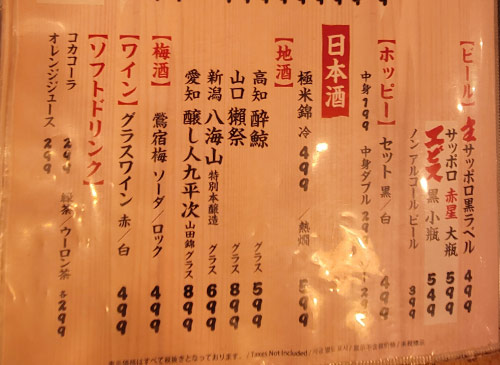 【ビール】
生 サッポロ黒ラベル 499
サッポロ 赤星 大瓶 599
ヱビス 黒 小瓶 549
ノンアルコールビール 399
【ホッピー】
セット 黒／白 499
中身 199 中身ダブル
日本酒
極米錦 冷 499 ／熱燗 599
【地酒】
高知 酔鯨 グラス 599
山口 獺祭 グラス 899
新潟 八海山 特別本醸造 グラス 699
愛知 醸し人九平次 山田錦 グラス 899
【梅酒】
鶯宿梅 ソーダ／ロック 499
【ワイン】
グラスワイン 赤／白 499
【ソフトドリンク】
コカコーラ 249 緑茶／ウーロン茶 各299
オレンジジュース 299
表示価格はすべて税抜きとなっております。/ Taxes Not Included /